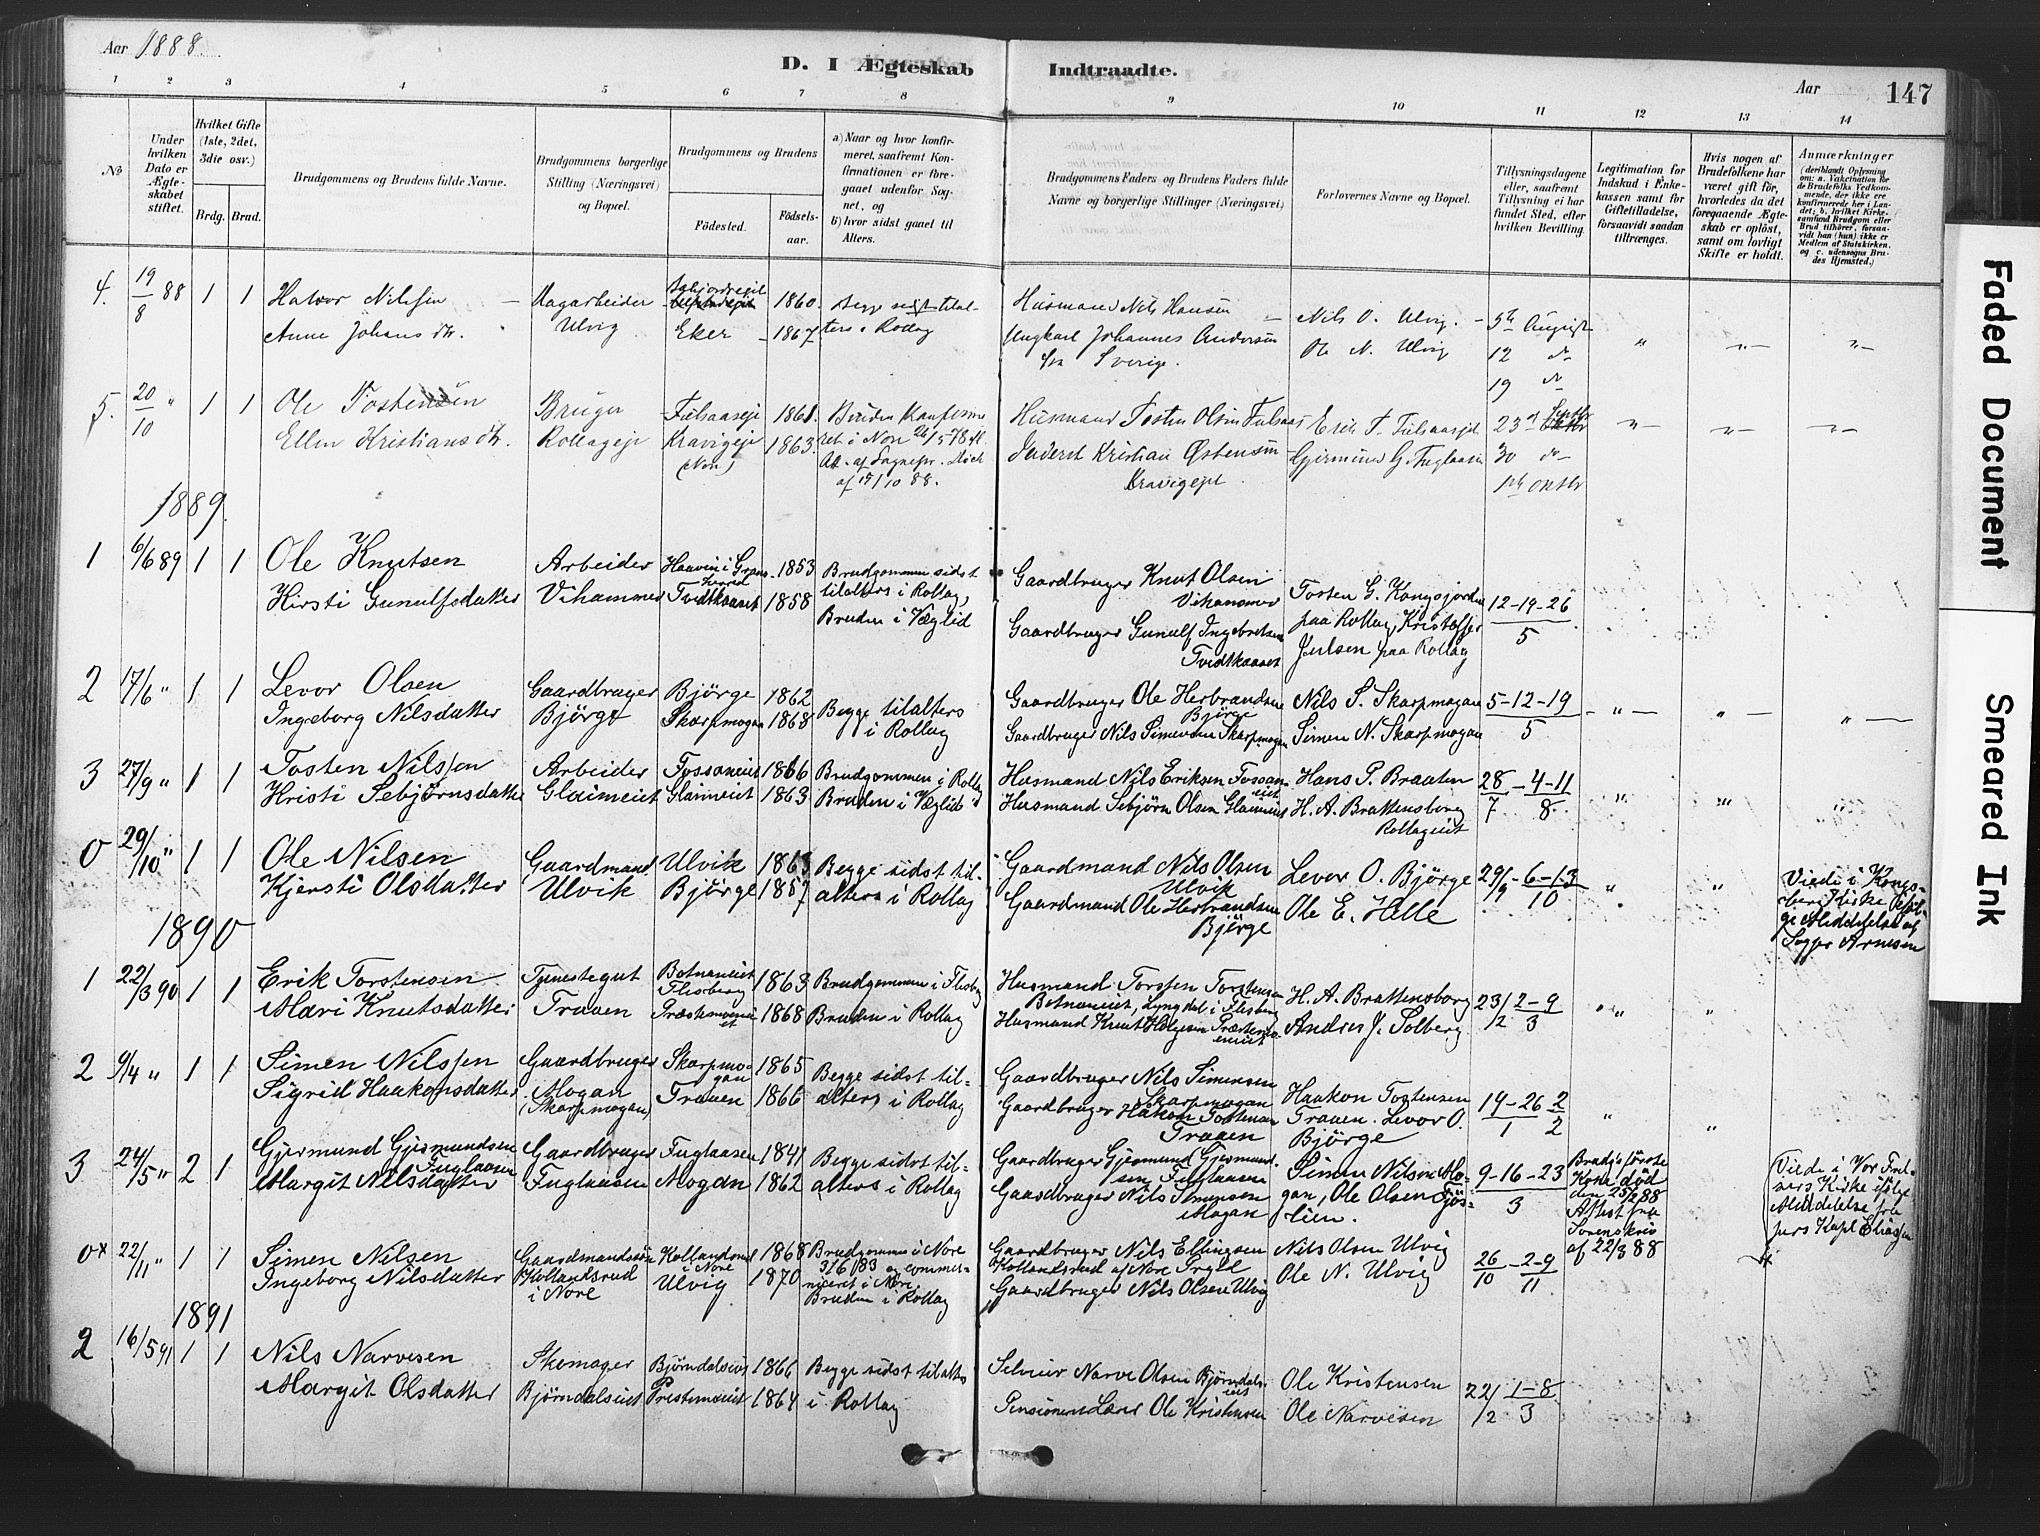 Aar 1888.
D. I Ægteskab Indtraadte.
Aar 147
1 2 3 4 5 6 7 8 9 10 11 12 13 14
No
Under hvilken Dato er Ægteskabet stiftet.
Hvilket Gifte (1ste, 2det, 3die osv.)
Brdg. Brud.
Brudgommens og Brudens fulde Navne.
Brudgommens borgerlige Stilling (Næringsvei) og Bopæl.
Brudgommens og Brudens
Fødested.
Fødsels-aar.
a) Naar og hvor konfirmeret, saafremt Konfirmationen er foregaaet udenfor Sognet, og
b) hvor sidst gaaet til Alters.
Brudgommens Faders og Brudens Faders fulde Navne og borgerlige Stillinger (Næringsvei)
Forlovernes Navne og Bopæl.
Tillysningsdagene eller, saafremt Tillysning ei har fundet Sted, efter hvilken Bevilling.
Legitimation for Indskud i Enkekassen samt for Giftetilladelse, forsaavidt saadan tiltrænges.
Hvis nogen af Brudefolkene har været gift før, hvorledes da det foregaaende Ægteskab er opløst, samt om lovligt Skifte er holdt.
Anmærkninger
(deriblandt Oplysning om: a. Vakcination for de Brudefolks Vedkommende, der ikke ere konfirmerede her i Landet; b. hvilket Kirkesamfund Brudgom eller Brud tilhører, forsaavidt han (hun) ikke er Medlem af Statskirken. og c. udensogns Brudes Hjemsted.)
4. 19/8 88 1 1 Halvor Nilssen
Anne Johansdtr.
Dagarbeider
Ulvig
Eker
1860.
1867.
Begge sidst tilalters i Rollag
Husmand Nils Hansen
Ungkarl Johannes Andersen
fra Sverige.
Nils O. Ulvig.
Ole N. Ulvig
5te August
12 do
19 do
5. 20/10 " 1 1 Ole Tostensen
Ellen Kristiansdtr.
Bruger
Rollageje
Fulsaaseje
Kravigeje
(Nore)
1861.
1863.
Bruden konfirmeret i Nore 26/5 78 att.
Att. af Sognepr.
af 17/10 88.
Husmand Tosten Olsen Fulsaas
Inderst Kristian Østensen
Kravigeje
Erik T. Fulsaasje
Gjermund G. Fuglaasen
23d Septbr
30 do
1889.
1 6/6 89 1 1 Ole Knutsen
Kirsti Gunulfsdatter
Arbeider
Vihammer
Haavin i Gransherred
Tvidtkaaset
1853
1858
Brudgommen sidst
tilalters i Rollag,
Bruden i Væglid
Gaardbruger Knut Olsen
Vihammer
Gaardbruger Gunulf Ingebretsen
Tvidtkaaset
Tosten G. Kongsjorden
paa Rollag, Kristoffer
Julsen paa Rollag
12-19-26
5
2 17/6 " 1 1 Levor Olsen
Ingeborg Nilsdatter
Gaardbruger
Björge
Björge
Skarpmogan
1862
1868
Begge tilalters
i Rollag
Gaardbruger Ole Herbrandsen
Björge
Gaardbruger Nils Simensen Skarpmogan
Nils S. Skarpmogan
Simen N. Skarpmogan
5-12-19
5
3 27/9 " 1 1 Tosten Nilssen
Kristi Sebjörnsdatter
Arbeider
Glaimeiet
Fossaneiet
Glaimeiet
1866
1863
Brudgommen i Rollag
Bruden i Væglid
Husmand Nils Eriksen Fossaneiet
Husmand Sebjörn Olsen Glaimeiet
Hans P. Braaten
H. A. Brattensborg
Rollageiet
28/7-4-11/8
0 29/10 " 1 1 Ole Nilsen
Kjersti Olsdatter
Gaardmand
Ulvik
Ulvik
Björge
1863
1857
Begge sidst tilalters i Rollag
Gaardmand Nils Olsen
Ulvik
Gaardmand Ole Herbrandsen
Björge
Levor O. Björge
Ole E. Helle
29/9-6-13/10
Viede i Kongsberg Kirke ifølge Meddelelse af Sogpr Arnesen
1890
1 22/3 90 1 1 Erik Torstensen
Mari Knutsdatter
Tjenestegut
Traaen
Botnaneiet
Flesberg
Præstemoeneiet
1863
1868
Brudgommen i Flesbg
Bruden i Rollag
Husmand Torsten Torstensen
Botnaneiet, Lyngdal i Flesberg
Husmand Knut Helgesen Præstemoeneiet
H. A. Brattensborg
Andres J. Solberg
23/2 2-9/3
2 9/4 " 1 1 Simen Nilssen
Sigrid Haakonsdatter
Gaardbruger
Mogan
(Skarpmogan)
Skarpmogan
Traaen
1865
1866
Begge sidst tilalters i Rollag
Gaardbruger Nils Simensen
Skarpmogan
Gaardbruger Håkon Tostensen
Traaen
Haakon Tostensen
Traaen. Levor O.
Björge
19-26/1 2/2
3 24/5 " 2 1 Gjermund Gjermundsen
Fuglaasen
Margit Nilsdatter
Gaardbruger
Fuglaasen
Fuglaasen
Mogan
1841
1862
Begge sidst tilalters i Rollag
Gaardbruger Gjermund Gjermundsen Fuglaasen
Gaardbruger Nils Simensen
Mogan
Simen Nilsen Mogan, Ole Olsen Fjöslien.
9-16-23
3
Brudg's förste
Kone död
den 25/2 88
Attest fra
Sorenskriv
af 22/3 88
Viede i Vor Frelsers Kirke ifölge
Meddelelse fra
pers Kapl Eliassen
0x 22/11 " 1 1 Simen Nilsen
Ingeborg Nilsdatter
Gaardmandssön
Kollandsrud
i Nore
Kollandsrud
i Nore
Ulvig
1868
1870
Brudgommen i Nore
3/6 83 og communiceret i Nore.
Bruden i Rollag
Gaardbruger Nils Ellingsen
Kollandsrud af Nore
Gaardbruger Nils Olsen Ulvig
Nils Olsen Ulvig
Ole N. Ulvig
26/10-2-9/11
1891
2 16/5 91 1 1 Nils Narvesen
Margit Olsdatter
Skomager
Bjørndalseiet
Bjørndalseiet
Prestemoeiet
1866
1864
Begge sidst tilalters
i Rollag
Selveier Narve Olsen Bjørndalseiet
Pensioneret Lærer Ole Kristensen
Ole Kristensen
Ole Narvesen
22/2 1-8/3
Faded Document
Smeared Ink